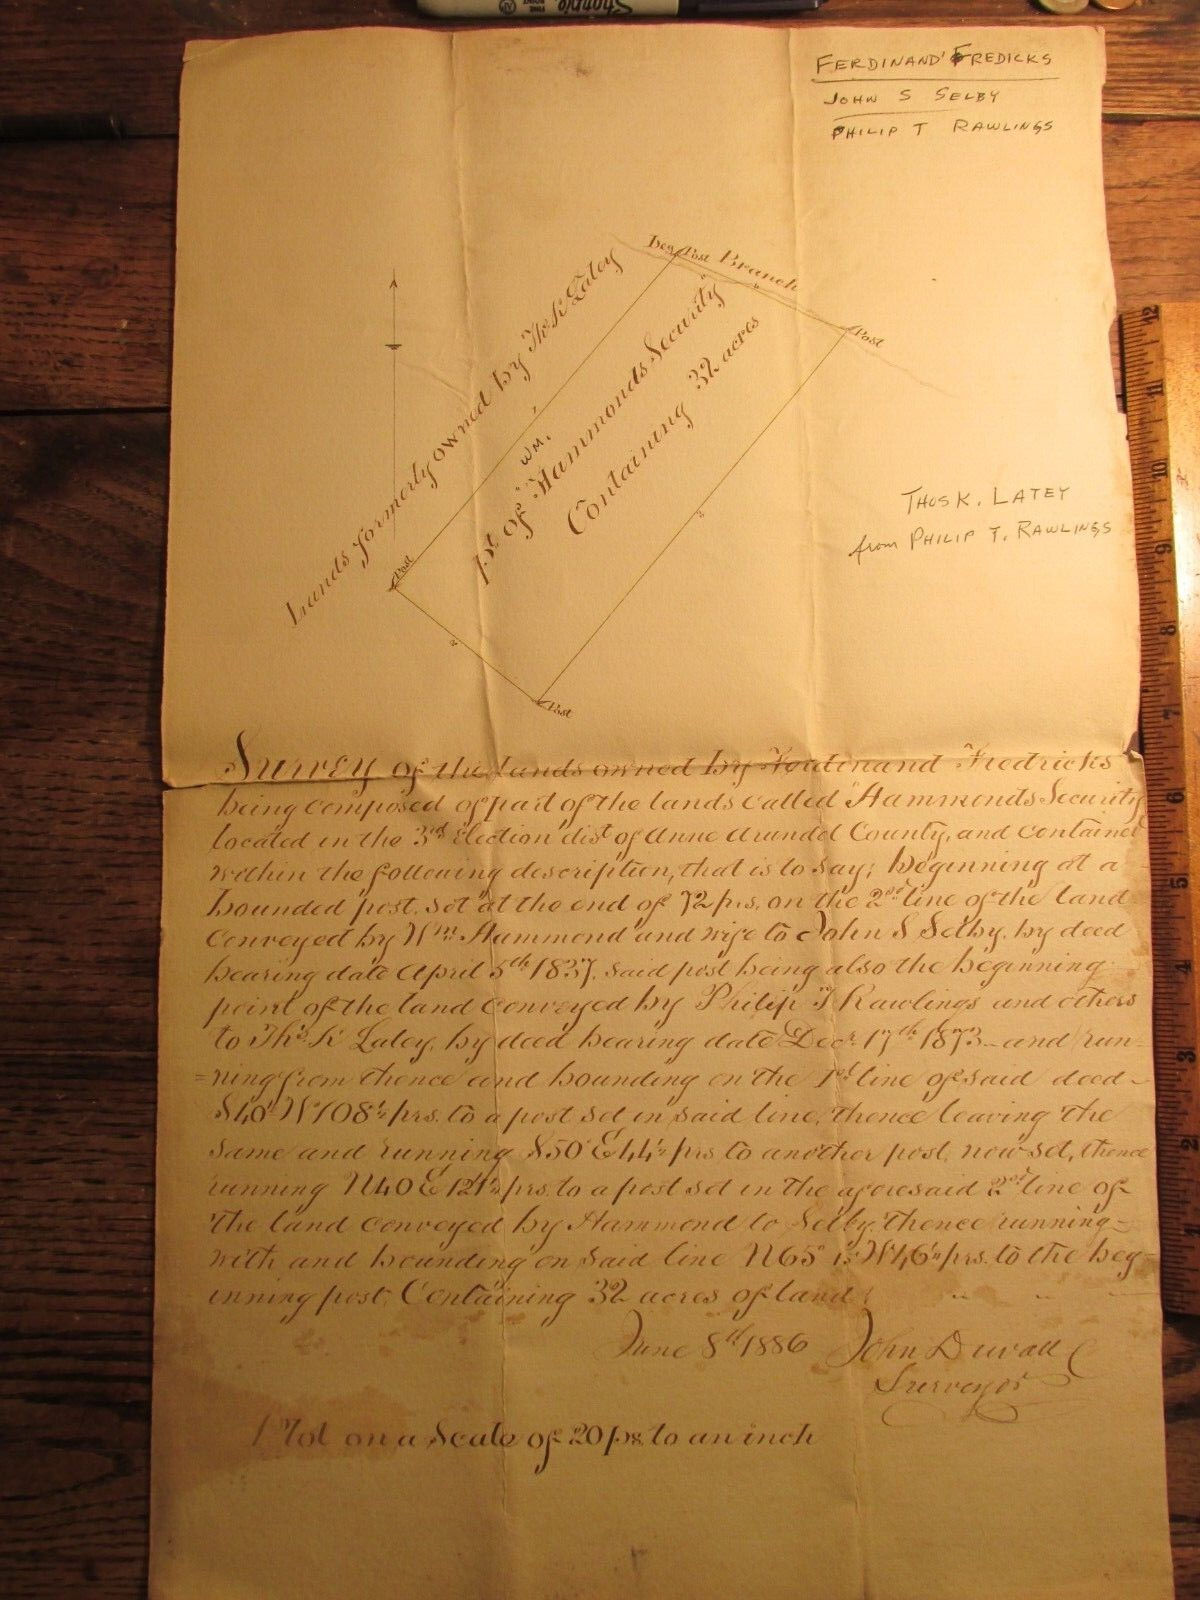 Sharpie.
FERDINAND' FREDICKS
JOHN S SELBY
PHILIP T RAWLINGS
Beg Post Branch
Post
Lands formerly owned by Th. K Latey
WM.
Pt. of "Hammonds Security"
Containing 32 acres
THOS K. LATEY
from PHILIP T. RAWLINGS
Post
Post
Survey of the lands owned by Ferdinand Fredricks
being composed of part of the lands called "Hammonds Security
located in the 3rd Election dist of Anne Arundel County, and contained
within the following description, that is to say; beginning at a
bounded post. set at the end of 72 prs. on the 2nd line of the land
conveyed by Wm Hammond and wife to John S Selby. by deed
bearing date April 5th 1837. said post being also the beginning
point of the land conveyed by Philip T Rawlings and others
to Ths. K Latey, by deed bearing date Decr 17th 1873 and run-
=ning from thence and bounding on the 1st line of said deed
S40° W 108½ prs. to a post set in said line, thence leaving the
same and running S50° E 44½ prs to another post. now set, thence
running N40 E 121½ prs. to a post set in the aforesaid 2nd line of
the land conveyed by Hammond to Selby. thence running
with and bounding on said line N65° W 46½ prs. to the beg-
inning post. Containing 32 acres of land
June 8th 1886 John Duvall
Surveyor
Plot on a Scale of 20 ps. to an inch
12
11
10
9
8
7
6
5
4
3
2
1